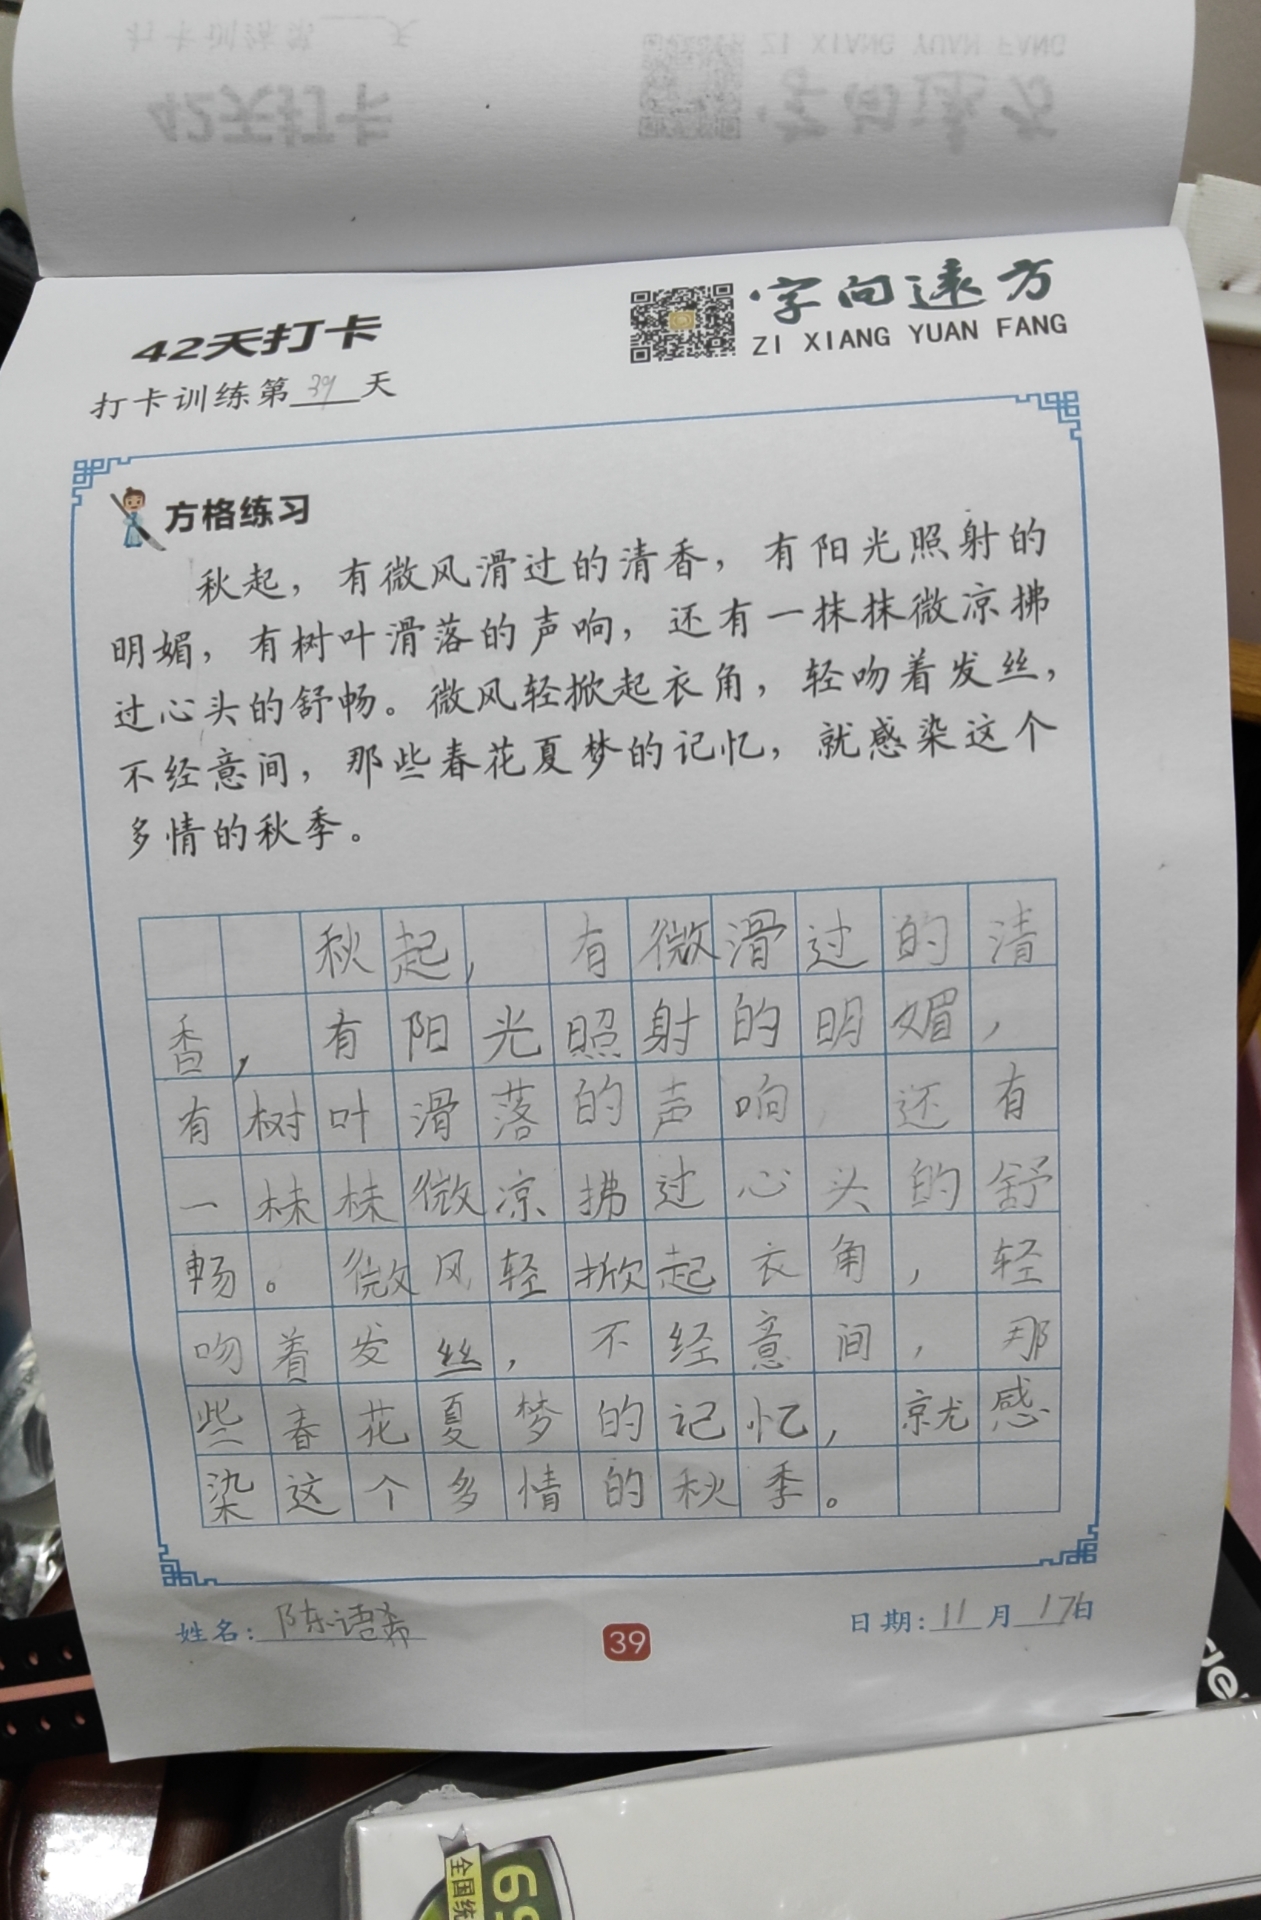 42天打卡
字向远方
ZI XIANG YUAN FANG
打卡训练第39天
方格练习
秋起，有微风滑过的清香，有阳光照射的
明媚，有树叶滑落的声响，还有一抹抹微凉拂
过心头的舒畅。微风轻掀起衣角，轻吻着发丝，
不经意间，那些春花夏梦的记忆，就感染这个
多情的秋季。
秋起，有微滑过的清
香，有阳光照射的明媚，
有树叶滑落的声响，还有
一抹抹微凉拂过心头的舒
畅。微风轻掀起衣角，轻
吻着发丝，不经意间，那
些春花夏梦的记忆，就感
染这个多情的秋季。
姓名：陈语希
39
日期：11月17日
全国统